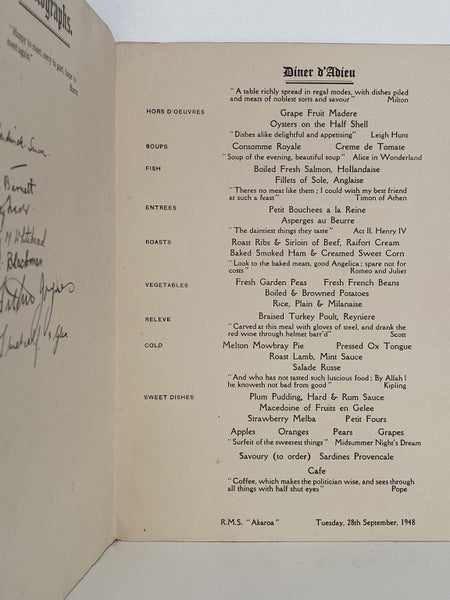 ographs.
"Happy to meet, sorry to part, happy to
meet again."
Burns
Barnett
Whitehead
Diner d'Adieu
"A table richly spread in regal modes, with dishes piled
and meats of noblest sorts and savour" Milton
HORS D'OEUVRES Grape Fruit Madere
Oysters on the Half Shell
"Dishes alike delightful and appetising" Leigh Hunt
SOUPS Consomme Royale Creme de Tomate
"Soup of the evening, beautiful soup" Alice in Wonderland
FISH Boiled Fresh Salmon, Hollandaise
Fillets of Sole, Anglaise
"Theres no meat like them; I could wish my best friend
at such a feast" Timon of Athen
ENTREES Petit Bouchees a la Reine
Asperges au Beurre
"The daintiest things they taste" Act II, Henry IV
ROASTS Roast Ribs & Sirloin of Beef, Raifort Cream
Baked Smoked Ham & Creamed Sweet Corn
"Look to the baked meats, good Angelica; spare not for
costs" Romeo and Juliet
VEGETABLES Fresh Garden Peas Fresh French Beans
Boiled & Browned Potatoes
Rice, Plain & Milanaise
RELEVE Braised Turkey Poult, Reyniere
"Carved at this meal with gloves of steel, and drank the
red wine through helmet barr'd" Scott
COLD Melton Mowbray Pie Pressed Ox Tongue
Roast Lamb, Mint Sauce
Salade Russe
"And who has not tasted such luscious food; By Allah!
he knoweth not bad from good" Kipling
SWEET DISHES Plum Pudding, Hard & Rum Sauce
Macedoine of Fruits en Gelee
Strawberry Melba Petit Fours
Apples Oranges Pears Grapes
"Surfeit of the sweetest things" Midsummer Night's Dream
Savoury (to order) Sardines Provencale
Cafe
"Coffee, which makes the politician wise, and sees through
all things with half shut eyes" Pope
R.M.S. "Akaroa" Tuesday, 28th September, 1948